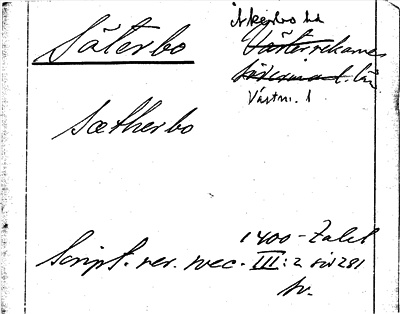 Säterbo
Åkerbo hd
Västerrekarne
Södermanl. län
Västm. l
Sætherbo
1400-talet
Script. rer. svec. III:2 sid 281